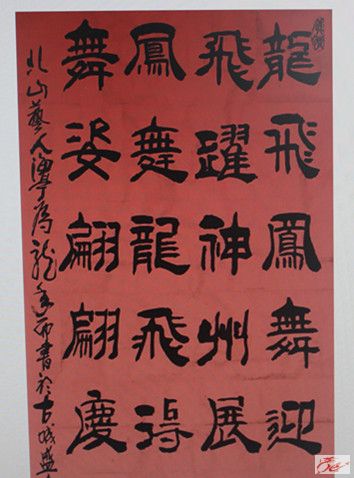 龍飛鳳舞迎
飛躍神州展
鳳舞龍飛得
舞姿翩翩慶
北山藝人為龍年而書於古城盛